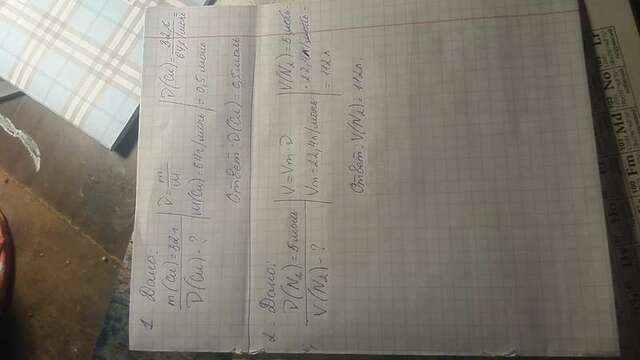 1 Дано:
m(Cu)=32г
ν(Cu)-?
ν=m/M
M(Cu)=64г/моль
ν(Cu)=32г/64г/моль
=0,5моль
Ответ: ν(Cu)=0,5моль
2. Дано:
ν(N₂)=5моль
V(N₂)-?
V=Vm·ν
Vm=22,4л/моль
V(N₂)=5моль·
·22,4л/моль=
=112л
Ответ: V(N₂)=112л
Fm
Md
No
Lr